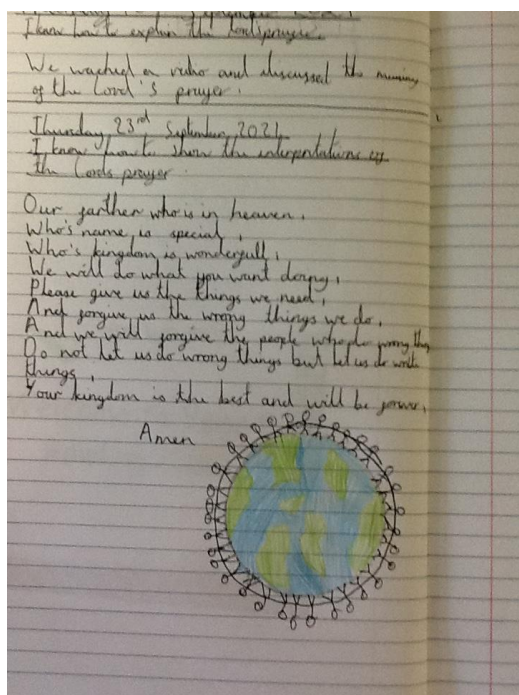 I know how to explain the lords prayer.
We wached a video and discussed the meaning
of the Lord's prayer.
Thursday 23rd September 2021
I know how to show the interpretations of
the Lords prayer
Our farther who is in heaven,
Who's name is special,
Who's kingdom is wonderfull,
We will do what you want doing,
Please give us the things we need,
And forgive us the wrong things we do,
And we will forgive the people who do wrong
Do not let us do wrong things but let us do
things,
Your kingdom is the best and will be
Amen